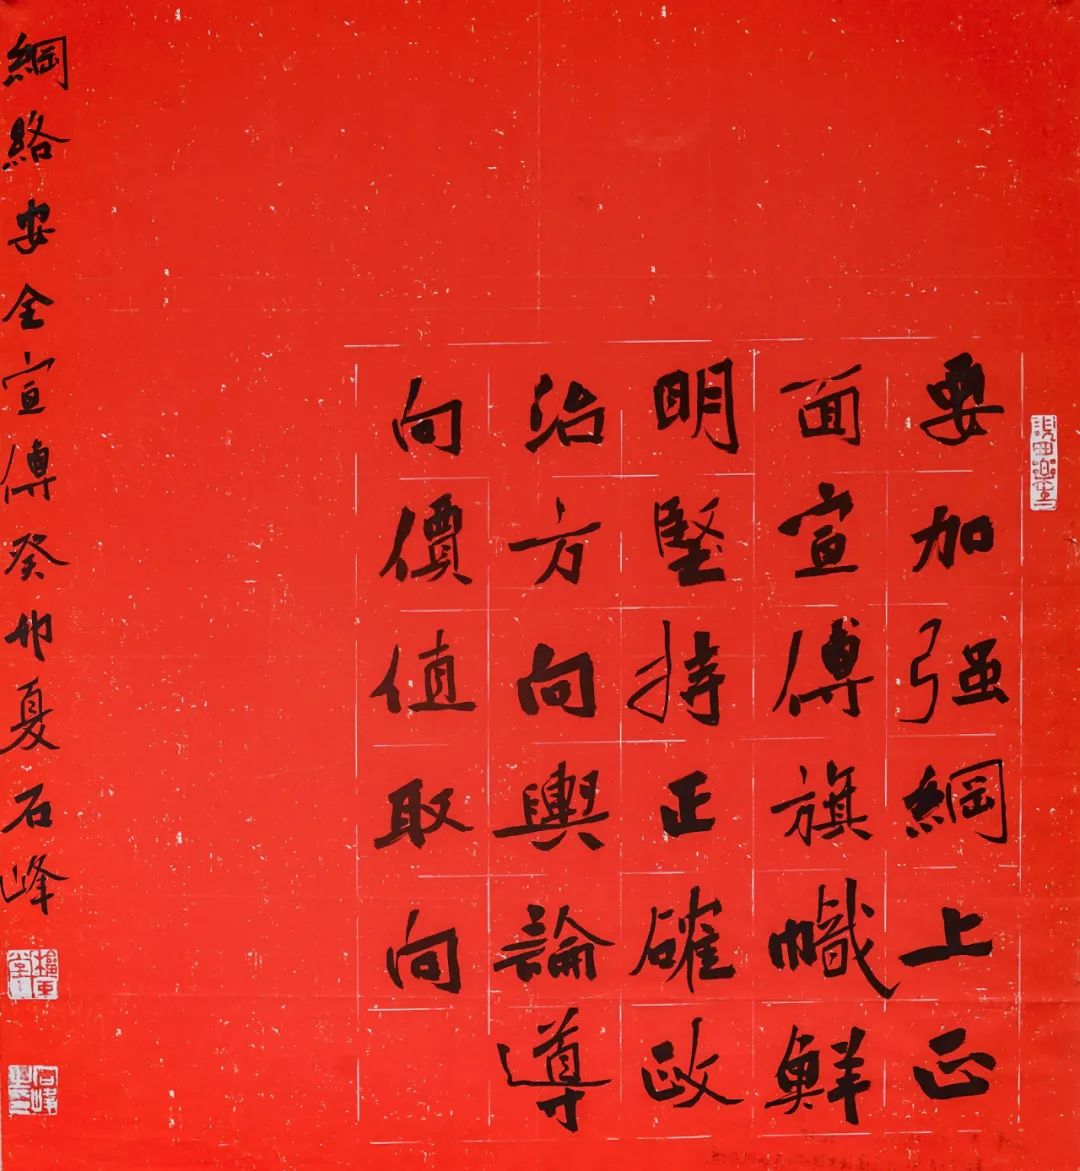 要加强網上正
面宣傳旗幟鮮
明堅持正確政
治方向輿論導
向價值取向
網絡安全宣傳癸卯夏石峰